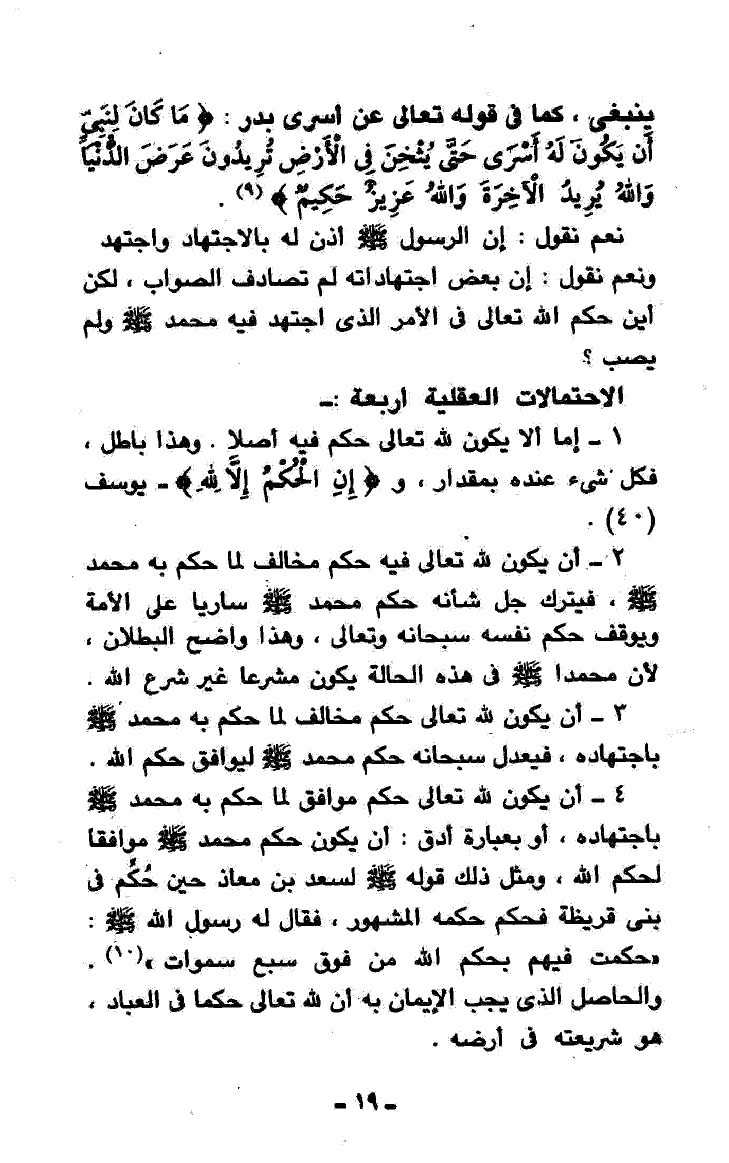 ينبغى ، كما فى قوله تعالى عن أسرى بدر : ﴿ مَا كَانَ لِنَبِيٍّ
أَن يَكُونَ لَهُ أَسْرَى حَتَّى يُثْخِنَ فِى الْأَرْضِ تُرِيدُونَ عَرَضَ الدُّنْيَا
وَاللهُ يُرِيدُ الْآخِرَةَ وَاللهُ عَزِيزٌ حَكِيمٌ ﴾ (٩) .
نعم نقول : إن الرسول ﷺ أذن له بالاجتهاد واجتهد
ونعم نقول : إن بعض اجتهاداته لم تصادف الصواب ، لكن
أين حكم الله تعالى فى الأمر الذى اجتهد فيه محمد ﷺ ولم
يصب ؟
الاحتمالات العقلية أربعة :ـ
١ ـ إما ألا يكون لله تعالى حكم فيه أصلا . وهذا باطل ،
فكل شىء عنده بمقدار ، و ﴿ إِنِ الْحُكْمُ إِلَّا لِلهِ ﴾ ـ يوسف
(٤٠) .
٢ ـ أن يكون لله تعالى فيه حكم مخالف لما حكم به محمد
ﷺ ، فيترك جل شأنه حكم محمد ﷺ ساريا على الأمة
ويوقف حكم نفسه سبحانه وتعالى ، وهذا واضح البطلان ،
لأن محمدا ﷺ فى هذه الحالة يكون مشرعا غير شرع الله .
٣ ـ أن يكون لله تعالى حكم مخالف لما حكم به محمد ﷺ
باجتهاده ، فيعدل سبحانه حكم محمد ﷺ ليوافق حكم الله .
٤ ـ أن يكون لله تعالى حكم موافق لما حكم به محمد ﷺ
باجتهاده ، أو بعبارة أدق : أن يكون حكم محمد ﷺ موافقا
لحكم الله ، ومثل ذلك قوله ﷺ لسعد بن معاذ حين حُكِّم فى
بنى قريظة فحكم حكمه المشهور ، فقال له رسول الله ﷺ :
«حكمت فيهم بحكم الله من فوق سبع سموات »(١٠) .
والحاصل الذى يجب الإيمان به أن لله تعالى حكما فى العباد ،
هو شريعته فى أرضه .
ـ ١٩ ـ